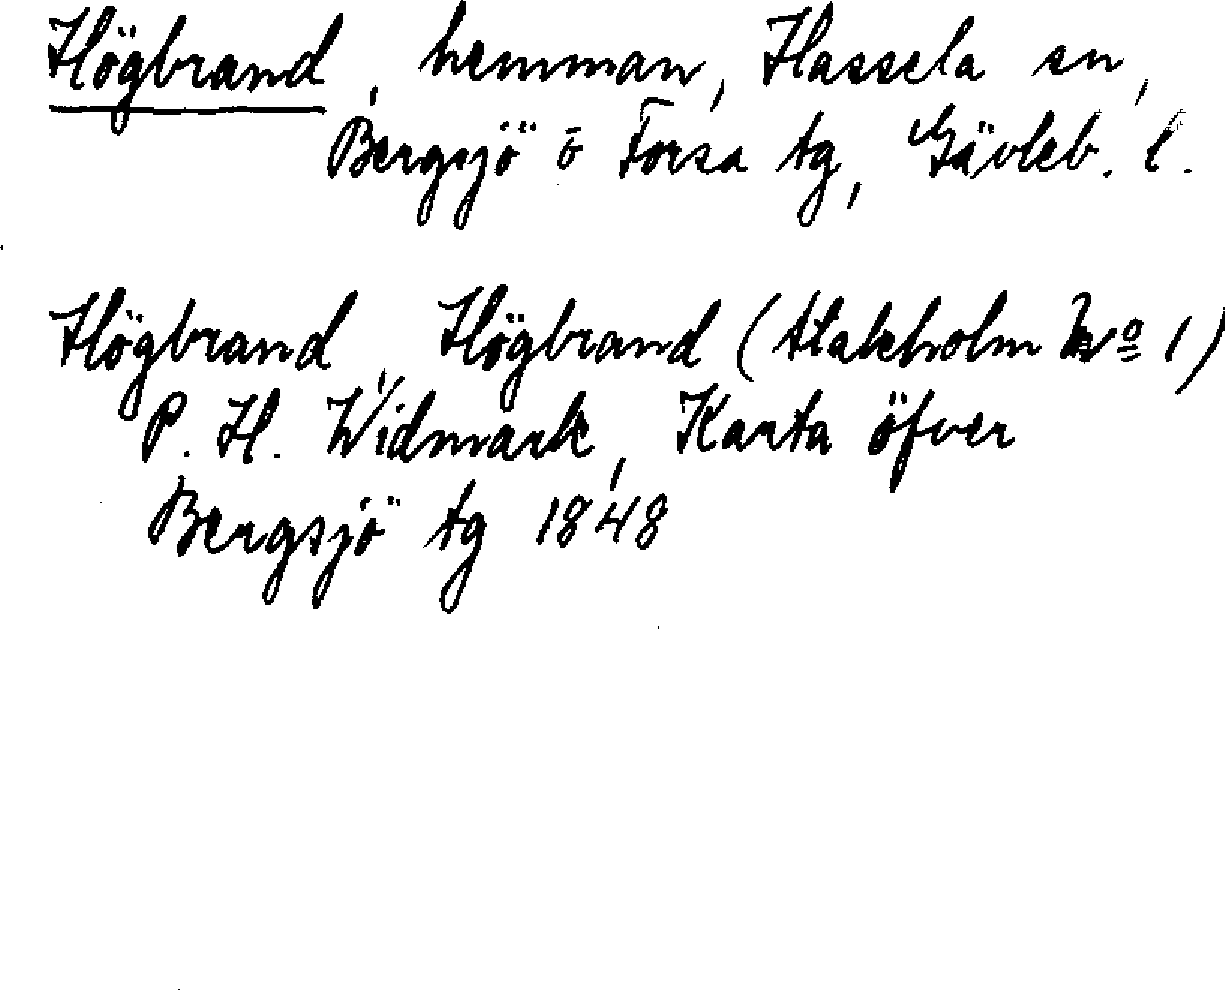 Högbrand, hemman, Hassela sn,
Bergsjö o Forsa tg, Gävleb. l.
Högbrand, Högbrand (Stakholm No 1)
P. H. Widmark, Karta öfver
Bergsjö tg 1848